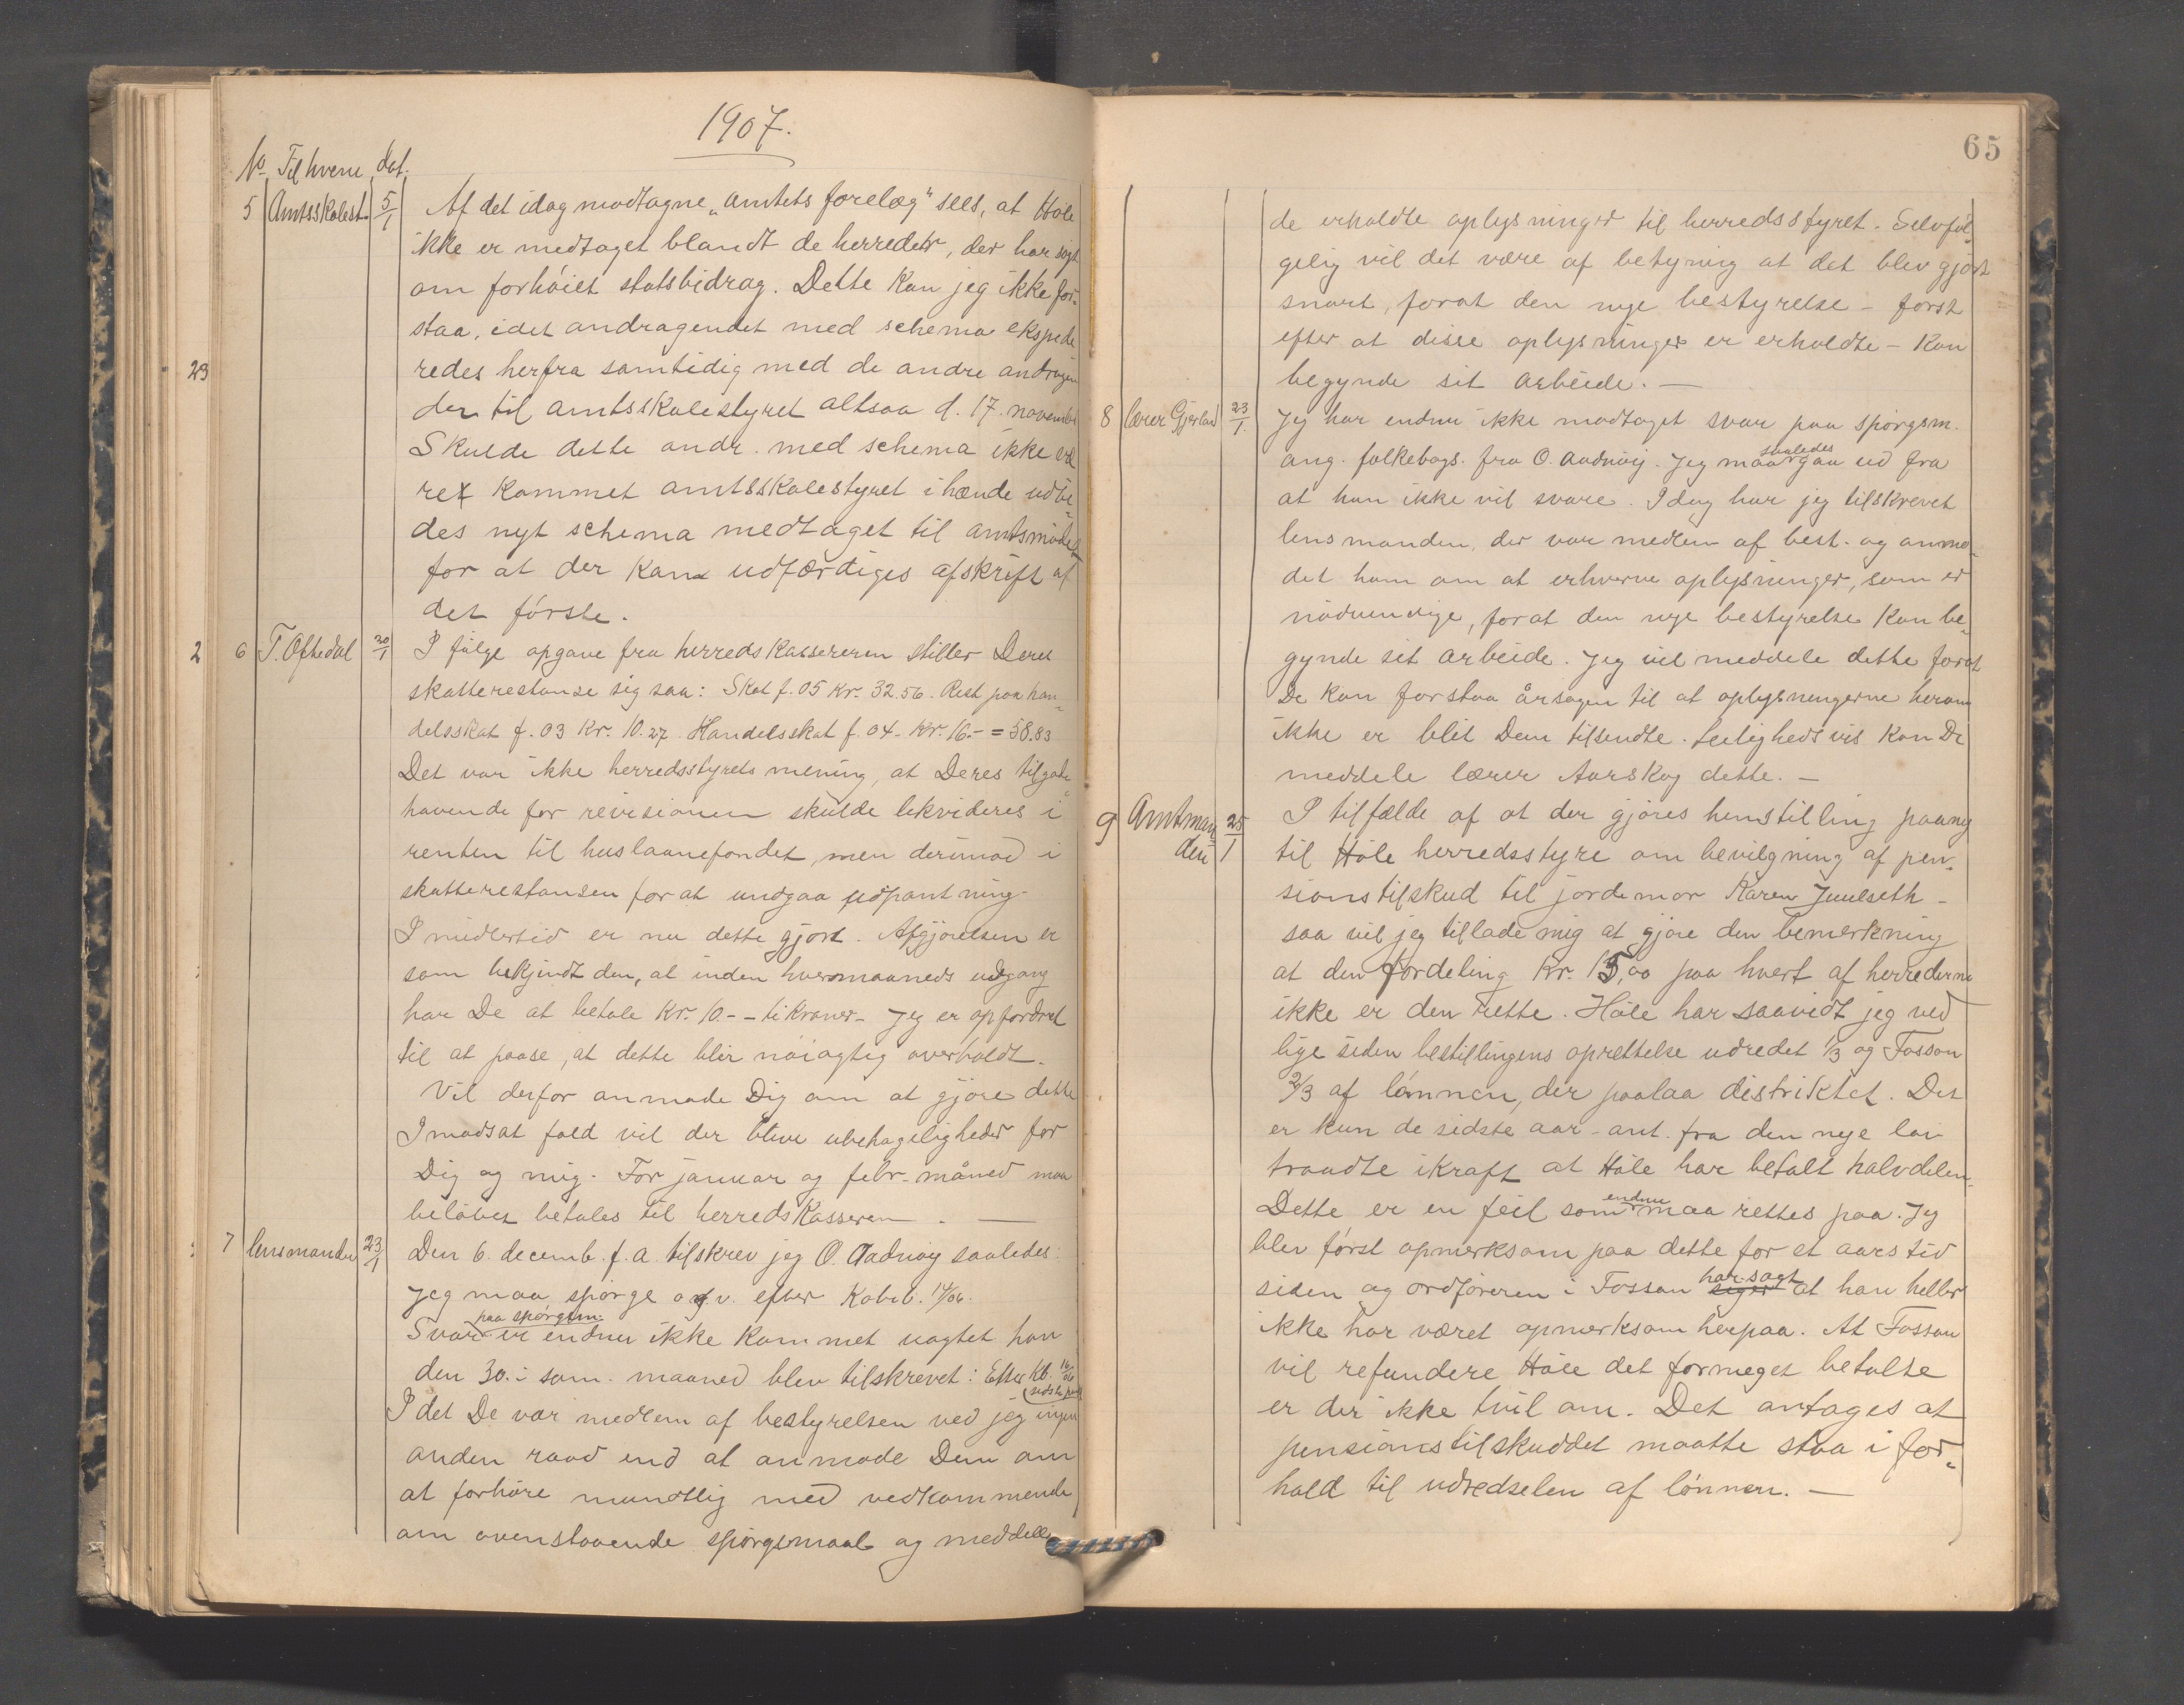 1907.
No. Til hvem dat.
5 Amtsskolest. 5/1 Af det idag modtagne „amtets forelæg" sees, at Høle
ikke er medtaget blandt de herreder, der har søgt
om forhöiet statsbidrag. Dette kan jeg ikke for-
staa, idet andragendet med schema ekspede
redes herfra samtidig med de andre andragen
der til amtsskolestyret altsaa d. 17. novembr
Skulde dette andr. med schema ikke væ
re kommet amtsskolestyret ihænde udbe-
des nyt schema medtaget til amtsmödet
for at der kan udfærdiges afskrift af
det förste.
6 T. Oftedal 20/1 I fölge opgave fra herredskassereren stiller Deres
skatterestanse sig saa: Skat f. 05 Kr. 32.56. Rest paa han-
delsskat f. 03 Kr. 10.27. Handelsskat f. 04 - Kr. 16.- = 58.83
Det var ikke herredsstyrets mening, at Deres tilgode-
havende for revisionen skulde likvideres i
renten til huslaanefondet, men derimod i
skatterestansen for at undgaa udpantning.
Imidlertid er nu dette gjort. Afgjörelsen er
som bekjendt den, at inden hver maaneds udgang
har De at betale Kr. 10.- - ti kroner - Jeg er opfordret
til at paase, at dette blir nöiagtig overholdt.
Vil derfor anmode Dig om at gjöre dette
I modsat fald vil der blive ubehageligheder for
Dig og mig. For januar og febr. måned maa
belöbet betales til herredskasseren. —
7 lensmanden 23/1 Den 6. decemb. f. a. tilskrev jeg O. Aadnöy saaledes:
Jeg maa spörge o.s.v. efter Kobib. 14/06.
paa spörgsm.
Svar er endnu ikke kommet uagtet han
den 30. i sam. maaned blev tilskrevet: Efter Kb. 16/06
I det De var medlem af bestyrelsen ved jeg ingen
anden raad end at anmode Dem om
at forhöre mundtlig med vedkommende
om ovenstaaende spörgsmaal og meddele
65
de erholdte oplysninger til herredsstyret. Selvföl-
gelig vil det være af betyning at det blev gjort
snart, forat den nye bestyrelse - först
efter at disse oplysninger er erholdte - kan
begynde sit arbeide. —
8 lærer Gjerland 23/1. Jeg har endnu ikke modtaget svar paa spörgsm.
saaledes
ang. folkebogs. fra O. Aadnöy. Jeg maa gaa ud fra
at han ikke vil svare. Idag har jeg tilskrevet
lensmanden, der var medlem af best. og anmo-
det ham om at erhverve oplysninger, som er
nödvendige, forat den nye bestyrelse kan be-
gynde sit arbeide. Jeg vil meddele dette forat
De kan forstaa årsagen til at oplysningerne herom
ikke er blit Dem tilsendte. Leilighedsvis kan De
meddele lærer Aarskog dette. —
9 Amtman- 25/1 I tilfælde af at der gjöres henstilling paany
den til Höle herredsstyre om bevilgning af pen-
sionstilskud til jordemor Karen Juulseth -
saa vil jeg tillade mig at gjöre den bemerkning
at den fordeling Kr. 15,00 paa hvert af herrederne
ikke er den rette. Höle har saavidt jeg ved
lige siden bestillingens oprettelse udredet 1/3 og Fossan
2/3 af lönnen, der paalaa distriktet. Det
er kun de sidste aar - ant. fra den nye lov
traadte ikraft at Höle har betalt halvdelen.
endnu
Dette er en feil som maa rettes paa. Jeg
blev först opmerksom paa dette for et aars tid
har sagt
siden og ordföreren i Fossan siger at han heller
ikke har været opmerksom herpaa. At Fossan
vil refundere Höle det formeget betalte
er der ikke tvil om. Det antages at
pensionstilskuddet maatte staa i for-
hold til udredselen af lönnen. —